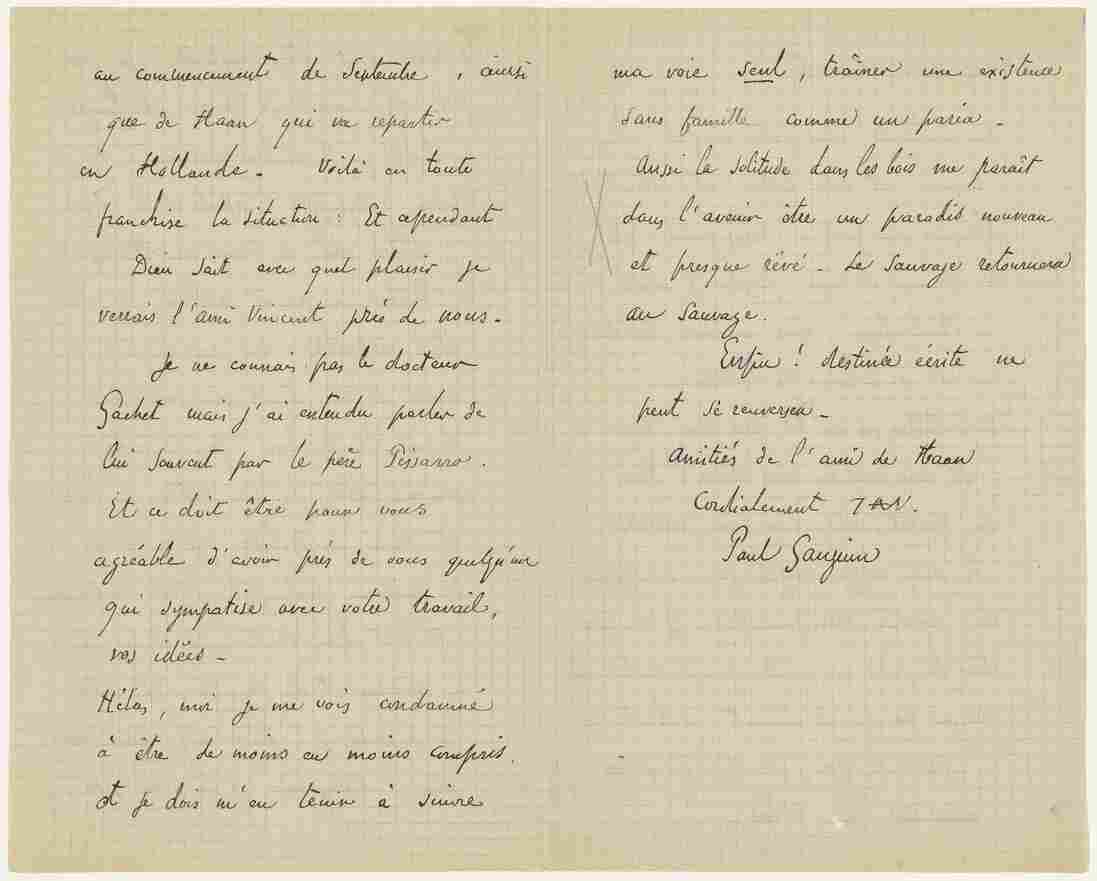 au commencement de Septembre, ainsi
que de Haan qui va repartir
en Hollande. Voilà en toute
franchise la situation : Et cependant
Dieu sait avec quel plaisir je
verrais l'ami Vincent près de nous.
Je ne connais pas le docteur
Gachet mais j'ai entendu parler de
lui souvent par le père Pissarro.
Et ce doit être pour vous
agréable d'avoir près de vous quelqu'un
qui sympatise avec votre travail,
vos idées –
Hélas, moi je me vois condamné
à être de moins en moins compris.
et je dois m'en tenir à suivre
ma voie seul, traîner une existence
sans famille comme un paria –
Aussi la solitude dans les bois me paraît
dans l'avenir être un paradis nouveau
et presque rêvé – Le sauvage retournera
au sauvage.
Enfin ! destinée écrite ne
peut se renverser –
Amitiés de l'ami de Haan
Cordialement
Paul Gauguin